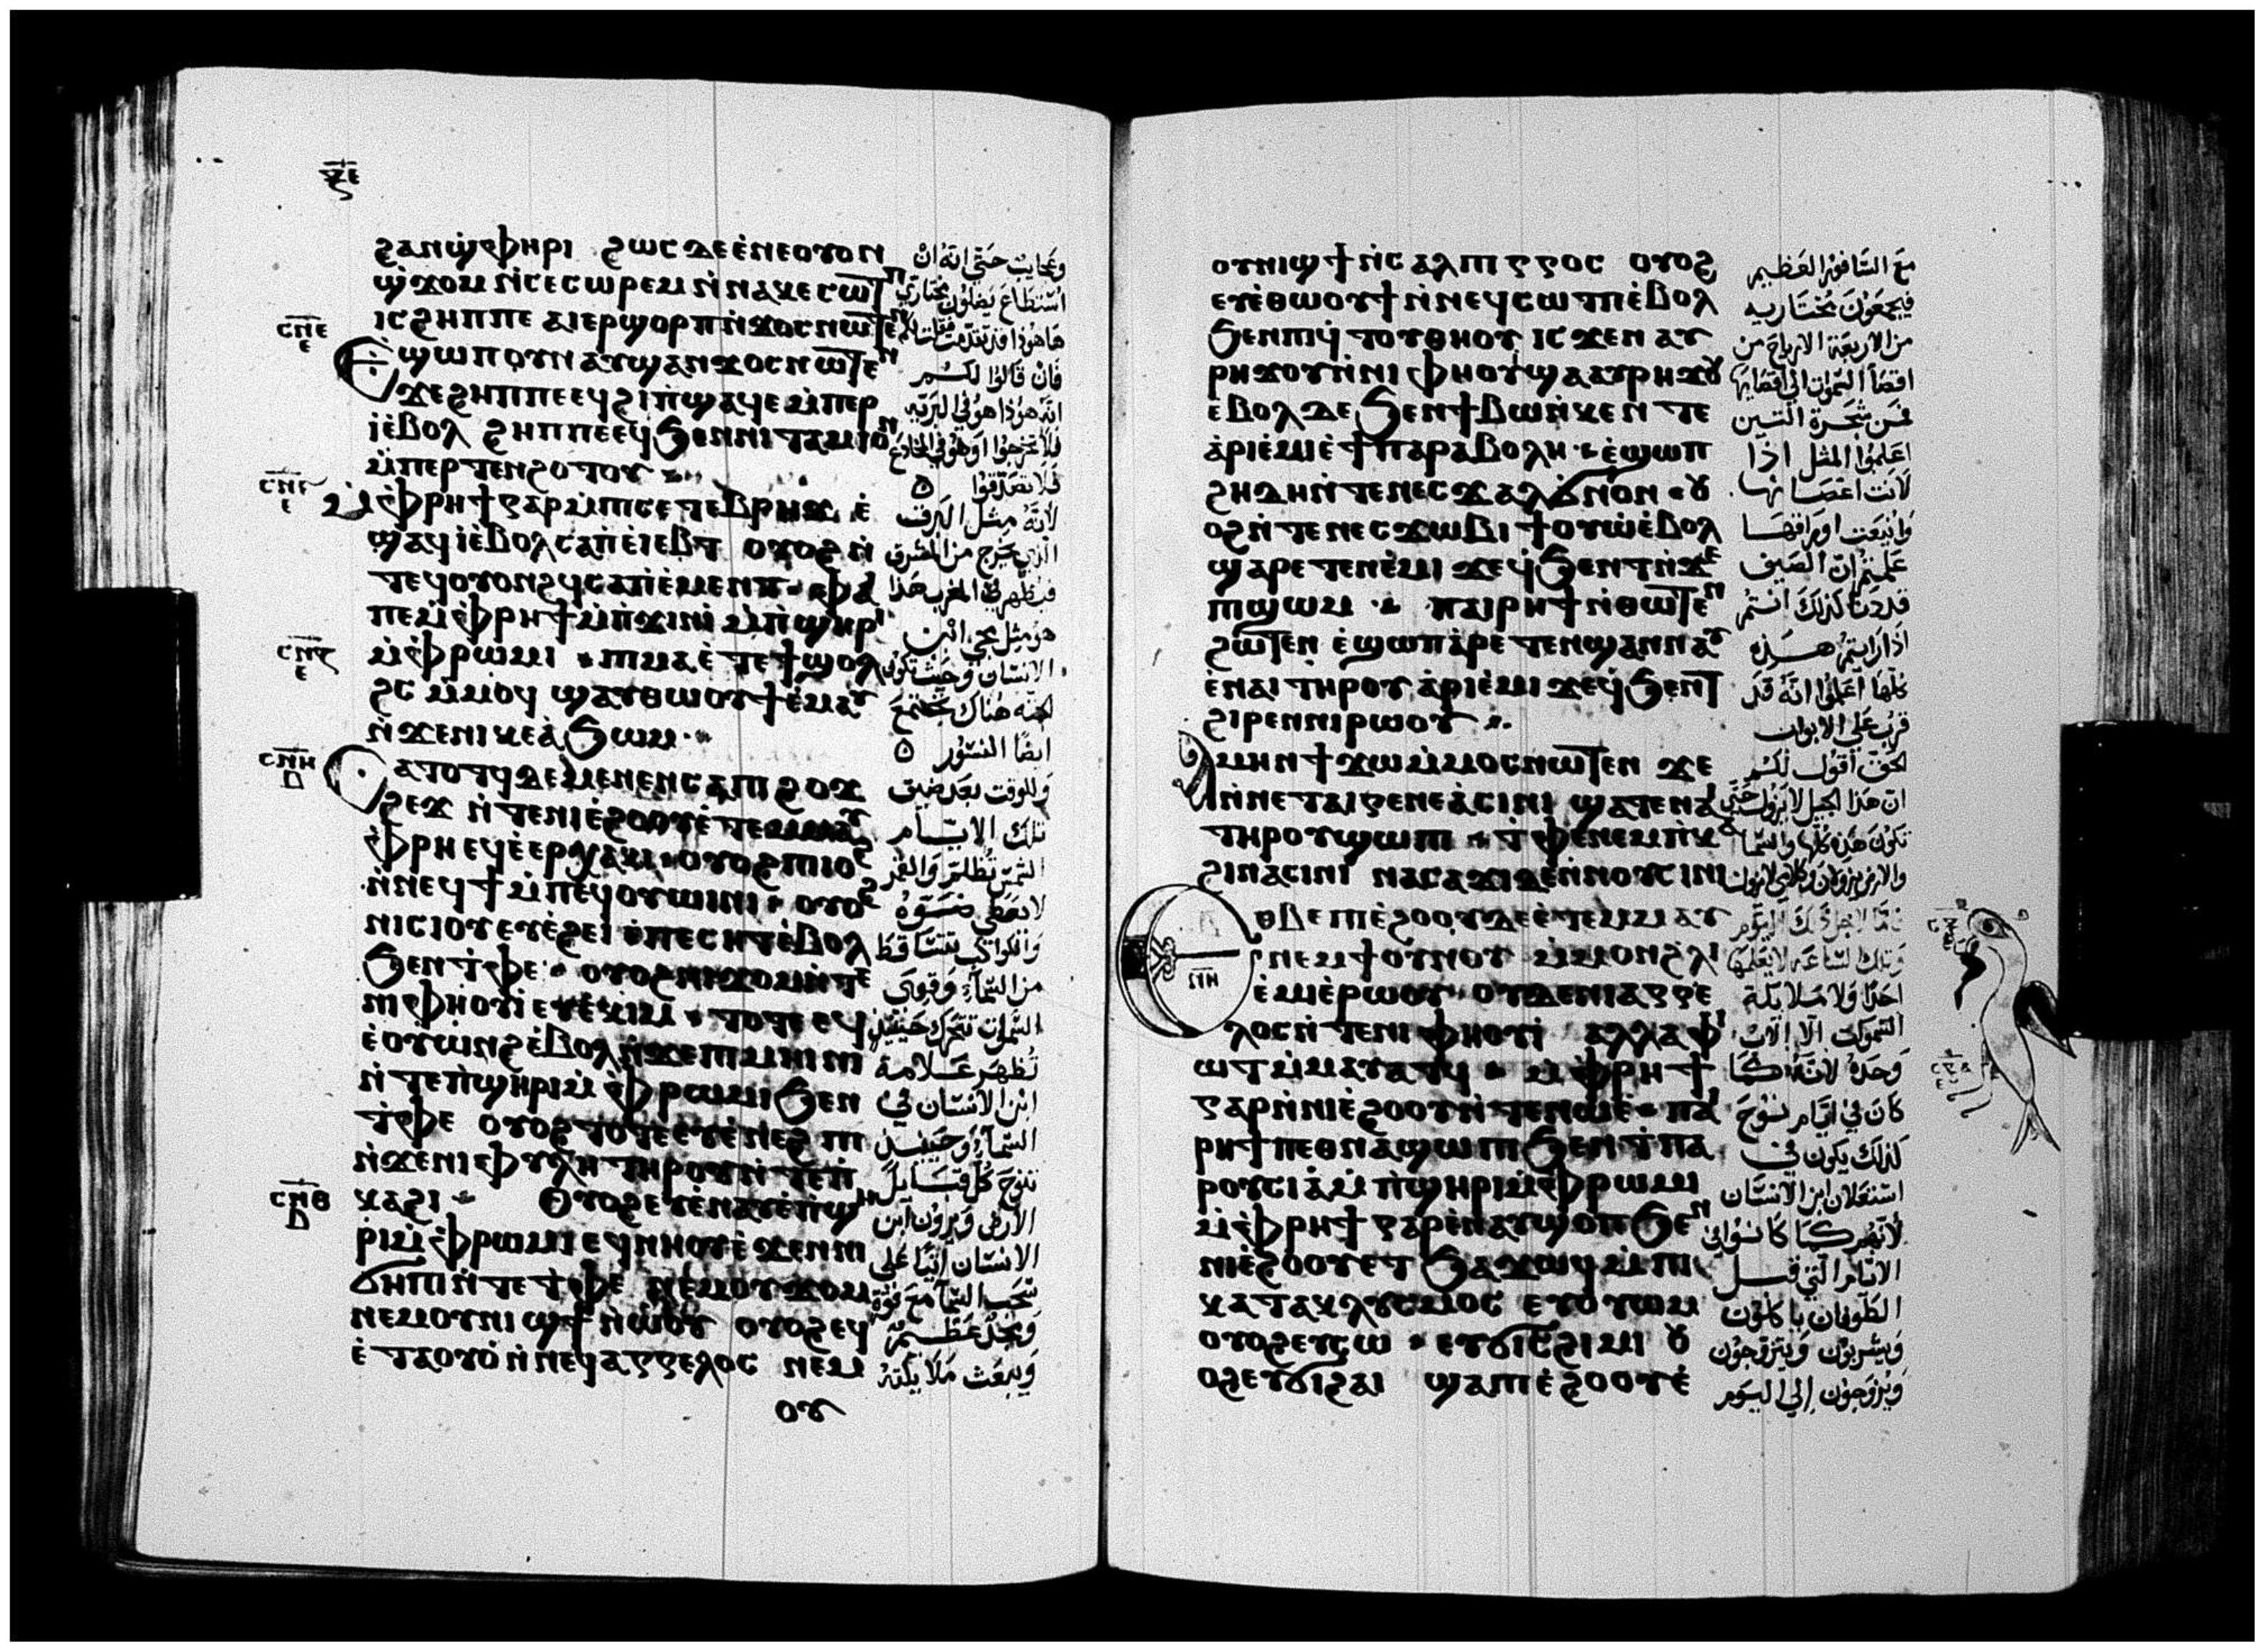 ⲝⲉ
ϩⲁⲛϣⲫⲏⲣⲓ ϩⲱⲥⲇⲉ ⲉⲛⲉⲟⲩⲟⲛ
ϣϫⲟⲙ ⲛⲥⲉⲥⲱⲣⲉⲙ ⲛⲛⲁⲕⲉⲥⲱⲧⲡ
ⲓⲥϩⲏⲡⲡⲉ ⲁⲓⲉⲣϣⲟⲣⲡ ⲛϫⲟⲥ ⲛⲱⲧⲉⲛ
ⲥⲛⲉ
ⲉ
Ⲉϣⲱⲡ ⲟⲩⲛ ⲁⲩϣⲁⲛϫⲟⲥ ⲛⲱⲧⲉⲛ
ϫⲉϩⲏⲡⲡⲉ ⲉϥϩⲓⲡϣⲁϥⲉ ⲙⲡⲉⲣ
ⲓⲉⲃⲟⲗ ϩⲏⲡⲡⲉ ⲉϥϧⲉⲛⲛⲓⲧⲁⲙⲓⲟⲛ
ⲙⲡⲉⲣⲧⲉⲛϩⲟⲩⲧⲟⲩ
ⲥⲛⲋ
ⲉ
Ⲙⲫⲣⲏϯ ⲅⲁⲣ ⲙⲡⲓⲥⲉⲧⲉⲃⲣⲏϫ ⲉ
ϣⲁϥⲓⲉⲃⲟⲗ ⲥⲁⲡⲉⲓⲉⲃⲧ ⲟⲩⲟϩ ⲛ
ⲧⲉϥⲟⲩⲟⲛϩϥ ⲥⲁⲡⲉⲙⲉⲛⲧ ⲫⲁⲓ
ⲡⲉ ⲙⲫⲣⲏϯ ⲙⲡϫⲓⲛⲓ ⲙⲡϣⲏⲣⲓ
ⲥⲛⲍ
ⲉ
ⲙⲫⲣⲱⲙⲓ ⲡⲓⲙⲁ ⲉⲧⲉϯϣⲟⲗ
ϩⲥ ⲙⲙⲟϥ ϣⲁⲩⲑⲱⲟⲩϯ ⲉⲙⲁⲩ
ⲛϫⲉⲛⲓⲕⲉⲁϧⲱⲙ
ⲥⲛⲏ
ⲃ
Ⲥⲁⲧⲟⲧϥ ⲇⲉ ⲙⲉⲛⲉⲛⲥⲁ ⲡⲓϩⲟϫ
ϩⲉϫ ⲛⲧⲉⲛⲓⲉϩⲟⲟⲩ ⲉⲧⲉⲙⲙⲁⲩ
ⲫⲣⲏ ⲉϥⲉⲉⲣⲭⲁⲕⲓ ⲟⲩⲟϩ ⲡⲓⲓⲟϩ
ⲛⲛⲉϥϯ ⲙⲡⲉϥⲟⲩⲱⲓⲛⲓ ⲟⲩⲟϩ
ⲛⲓⲥⲓⲟⲩ ⲉⲩⲉϩⲉⲓ ⲉⲡⲉⲥⲏⲧ ⲉⲃⲟⲗ
ϧⲉⲛⲧⲫⲉ ⲟⲩⲟϩ ⲛⲓϫⲟⲙ ⲛⲧⲉ
ⲛⲓⲫⲏⲟⲩⲓ ⲉⲩⲉⲕⲓⲙ ⲧⲟⲧⲉ ⲉϥ
ⲉⲟⲩⲱⲛϩ ⲉⲃⲟⲗ ⲛϫⲉⲡⲓⲙⲏⲓⲛⲓ
ⲛⲧⲉⲡϣⲏⲣⲓ ⲙⲫⲣⲱⲙⲓ ϧⲉⲛ
ⲧⲫⲉ ⲟⲩⲟϩ ⲧⲟⲧⲉ ⲉⲩⲉⲛⲉϩⲡⲓ
ⲛϫⲉⲛⲓⲫⲩⲗⲏ ⲧⲏⲣⲟⲩ ⲛⲧⲉⲡ
ⲥⲛⲑ
ⲃ
ⲕⲁϩⲓ Ⲟⲩⲟϩ ⲉⲩⲉⲛⲁⲩ ⲉⲡϣⲏ
ⲣⲓ ⲙⲫⲣⲱⲙⲓ ⲉϥⲛⲏⲟⲩ ⲉϫⲉⲛⲛⲓ
ϭⲏⲡⲓ ⲛⲧⲉⲧⲫⲉ ⲛⲉⲙⲟⲩϫⲟⲙ
ⲛⲉⲙⲟⲩⲛⲓϣϯ ⲛⲱⲟⲩ ⲟⲩⲟϩ ⲉϥ
ⲉⲧⲁⲟⲩⲟ ⲛⲛⲉϥⲁⲅⲅⲉⲗⲟⲥ ⲛⲉⲙ
ⲟⲩ
وعجايب حتى انه ان
استطاع يضلون مختاري
هاهوذا قد تقدمت فقلت لكم
فان قالوا لكم
انه هوذا هو في البريه
فلا تخرجوا او هو في المخادع
فلا تصدقوا
لانه مثل البرق
الذي يخرج من المشرق
فيظهر في المغرب هذا
هو مثل مجي ابن
الانسان وحيث تكون
الجثه هناك تجتمع
ايضا النسور
وللوقت بعد ضيق
تلك الايام
الشمس تظلم والقمر
لا يعطي ضوه
والكواكب تتساقط
من السماء وقوي
السموات تتحرك حينيذ
تظهر علامة
ابن الانسان في
السماء وحينيذ
تنوح كل قبايل
الارض ويرون ابن
الانسان اتيا على
سحب السما مع قوة
ومجد عظيم
ويبعث ملايكته
ⲟⲩⲛⲓϣϯ ⲛⲥⲁⲗⲡⲓⲅⲅⲟⲥ ⲟⲩⲟϩ
ⲉⲩⲉⲑⲱⲟⲩϯ ⲛⲛⲉϥⲥⲱⲧⲡ ⲉⲃⲟⲗ
ϧⲉⲛⲡⲓϥⲧⲟⲩⲑⲏⲟⲩ ⲓⲥϫⲉⲛ ⲁⲩ
ⲣⲏϫⲟⲩ ⲛⲛⲓⲫⲏⲟⲩⲓ ϣⲁⲁⲩⲣⲏϫⲟⲩ
ⲉⲃⲟⲗ ⲇⲉ ϧⲉⲛϯⲃⲱⲛⲕⲉⲛⲧⲉ
ⲁⲣⲓⲉⲙⲓ ⲉϯⲡⲁⲣⲁⲃⲟⲗⲏ ⲉϣⲱⲡ
ϩⲏⲇⲏ ⲛⲧⲉⲛⲉⲥϫⲁⲗ ϭⲛⲟⲛ ⲟⲩ
ⲟϩ ⲛⲧⲉⲛⲉⲥϫⲱⲃⲓ ϯⲟⲩⲱ ⲉⲃⲟⲗ
ϣⲁⲣⲉⲧⲉⲛⲉⲙⲓ ϫⲉϥϧⲉⲛⲧ ⲛϫⲉ
ⲡⲓϣⲱⲙ ⲡⲁⲓⲣⲏϯ ⲛⲑⲱⲧⲉⲛ
ϩⲱⲧⲉⲛ ⲉϣⲱⲡ ⲁⲣⲉⲧⲉⲛϣⲁⲛⲛⲁⲩ
ⲉⲛⲁⲓ ⲧⲏⲣⲟⲩ ⲁⲣⲓⲉⲙⲓ ϫⲉϥϧⲉⲛⲧ
ϩⲓⲣⲉⲛⲛⲓⲣⲱⲟⲩ
Ⲁⲙⲏⲛ ϯϫⲱ ⲙⲙⲟⲥ ⲛⲱⲧⲉⲛ ϫⲉ
ⲛⲛⲉⲧⲁⲓⲅⲉⲛⲉⲁ ⲥⲓⲛⲓ ϣⲁⲧⲉⲛⲁⲓ
ⲧⲏⲣⲟⲩ ϣⲱⲡⲓ ⲧⲫⲉ ⲛⲉⲙⲡⲕⲁ
ϩⲓ ⲛⲁⲥⲓⲛⲓ ⲛⲁⲥⲁϫⲓ ⲇⲉ ⲛⲛⲟⲩⲥⲓⲛⲓ
ⲛⲏ
Ⲉⲑⲃⲉ ⲡⲓⲉϩⲟⲟⲩ ⲇⲉ ⲉⲧⲉⲙⲙⲁⲩ
ⲛⲉⲙϯⲟⲩⲛⲟⲩ ⲙⲙⲟⲛϩⲗⲓ
ⲉⲙⲓ ⲉⲣⲱⲟⲩ ⲟⲩⲇⲉ ⲛⲓⲁⲅⲅⲉ
ⲗⲟⲥ ⲛⲧⲉⲛⲓⲫⲏⲟⲩⲓ ⲁⲗⲗⲁ ⲫⲓ
ⲱⲧ ⲙⲙⲁⲩⲁⲧϥ ⲙⲫⲣⲏϯ
ⲅⲁⲣ ⲛⲛⲓⲉϩⲟⲟⲩ ⲛⲧⲉⲛⲱⲉ ⲡⲁⲓ
ⲣⲏϯ ⲡⲉⲑⲛⲁϣⲱⲡⲓ ϧⲉⲛⲧⲡⲁ
ⲣⲟⲩⲥⲓⲁ ⲙⲡϣⲏⲣⲓ ⲙⲫⲣⲱⲙⲓ
ⲙⲫⲣⲏϯ ⲅⲁⲣ ⲉⲛⲁⲩϣⲟⲡ ϧⲉⲛ
ⲛⲓⲉϩⲟⲟⲩ ⲉⲧϧⲁϫⲱϥ ⲙⲡⲓ
ⲕⲁⲧⲁⲕⲗⲩⲥⲙⲟⲥ ⲉⲩⲟⲩⲱⲙ
ⲟⲩⲟϩ ⲉⲩⲥⲱ ⲉⲩϭⲓⲥϩⲓⲙⲓ ⲟⲩ
ⲟϩ ⲉⲩϭⲓϩⲁⲓ ϣⲁⲡⲓⲉϩⲟⲟⲩ ⲉ
مع السافور العظيم
فيجمعون مختاريه
من الاربعة الارياح من
اقصا السموات الى اقصايها
فمن شجرة التين
اعلموا المثل اذا
لانت اغصانها
وانبعت اوراقها
علمتم ان الصيف
قد دنا كذلك انتم
اذا رايتم هذه
كلها اعلموا انه قد
قرب على الابواب
الحق اقول لكم
ان هذا الجيل لا يزول حتى
تكون هذه كلها والسما
والارض يزولان وكلامي لا يزول
اليوم
وتلك الساعه لا يعلمها
احد ولا ملايكة
السموات الا الاب
وحده لانه كما
كان في ايام نوح
كذلك يكون في
استعلان ابن الانسان
لانهم كما كانوا في
الايام التي قبل
الطوفان ياكلون
ويشربون ويتزوجون
ويزوجون الي اليوم